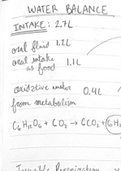 WATER BALANCE
INTAKE: 2.7L
oral fluid 1.2L
oral intake 1.1L
as food
oxidative water 0.4L
from metabolism
C₆H₁₂O₆ + CO₂ →